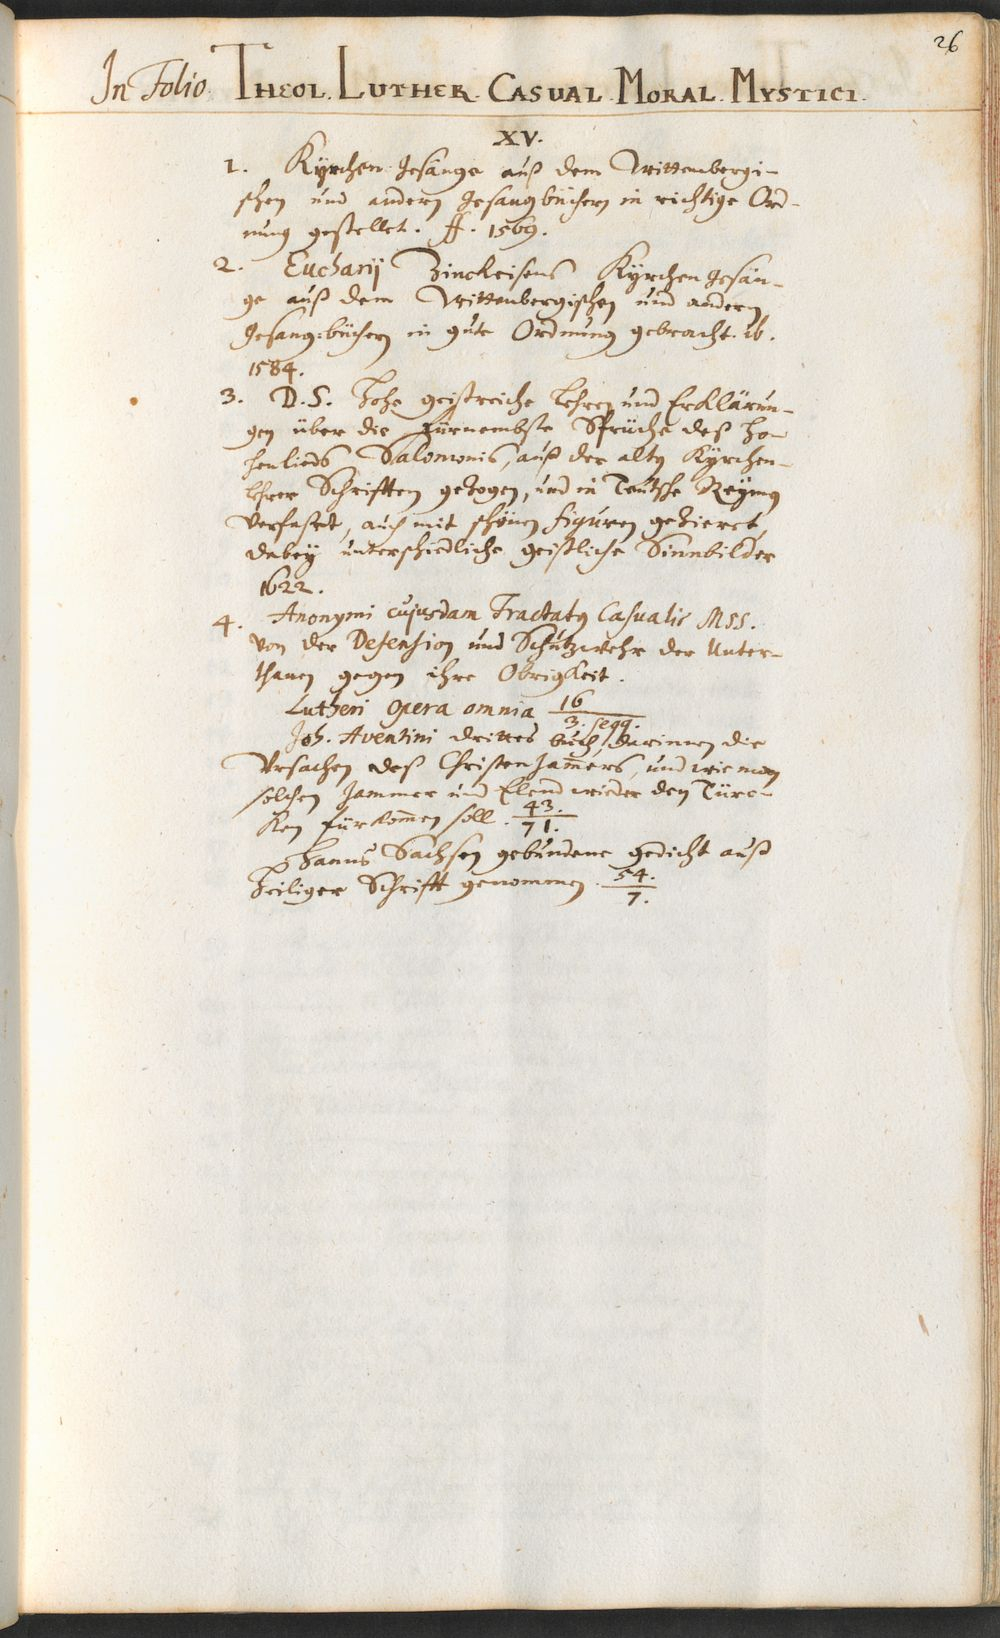 26
In Folio. THEOL. LUTHER. CASUAL. MORAL. MYSTICI.
XV.
1. Kÿrchen Gesänge auß dem Wittembergi-
schen und andern Gesangbüchern in richtige Ord-
nung gestellet. ff. 1569.
2. Eucharij Zinckeisens Kÿrchen Gesän-
ge auß dem Wittenbergischen und andern
Gesangbüchern in gute Ordnung gebracht. ib.
1584.
3. D. S. Hohe geistreiche Lehren und Erklärun-
gen über die Fürnembste Sprüche deß Ho-
henlieds Salomonis, auß der alten Kÿrchen-
lehrer Schrifften gezogen, und in Teutsche Reÿmen
verfasset, auch mit schönen figuren gezieret,
dabeÿ unterschiedliche geistliche Sinnbilder
1622.
4. Anonymi cujusdam Tractatus Casualis Mss.
von der Defension und Schutzwehr der Unter-
thanen gegen ihre Obrigkeit.
Lutheri Opera omnia 16
3. seqq.
Joh. Aventini drittes buch, darinnen die
Ursachen deß Christen Jam̄ers, und wie man
solchen Jammer und Elend wieder den Türc-
ken fürkom̄en soll. 43.
71.
Hanns Sachsen gebundene gedicht auß
Heiliger Schrifft genommen. 54.
7.